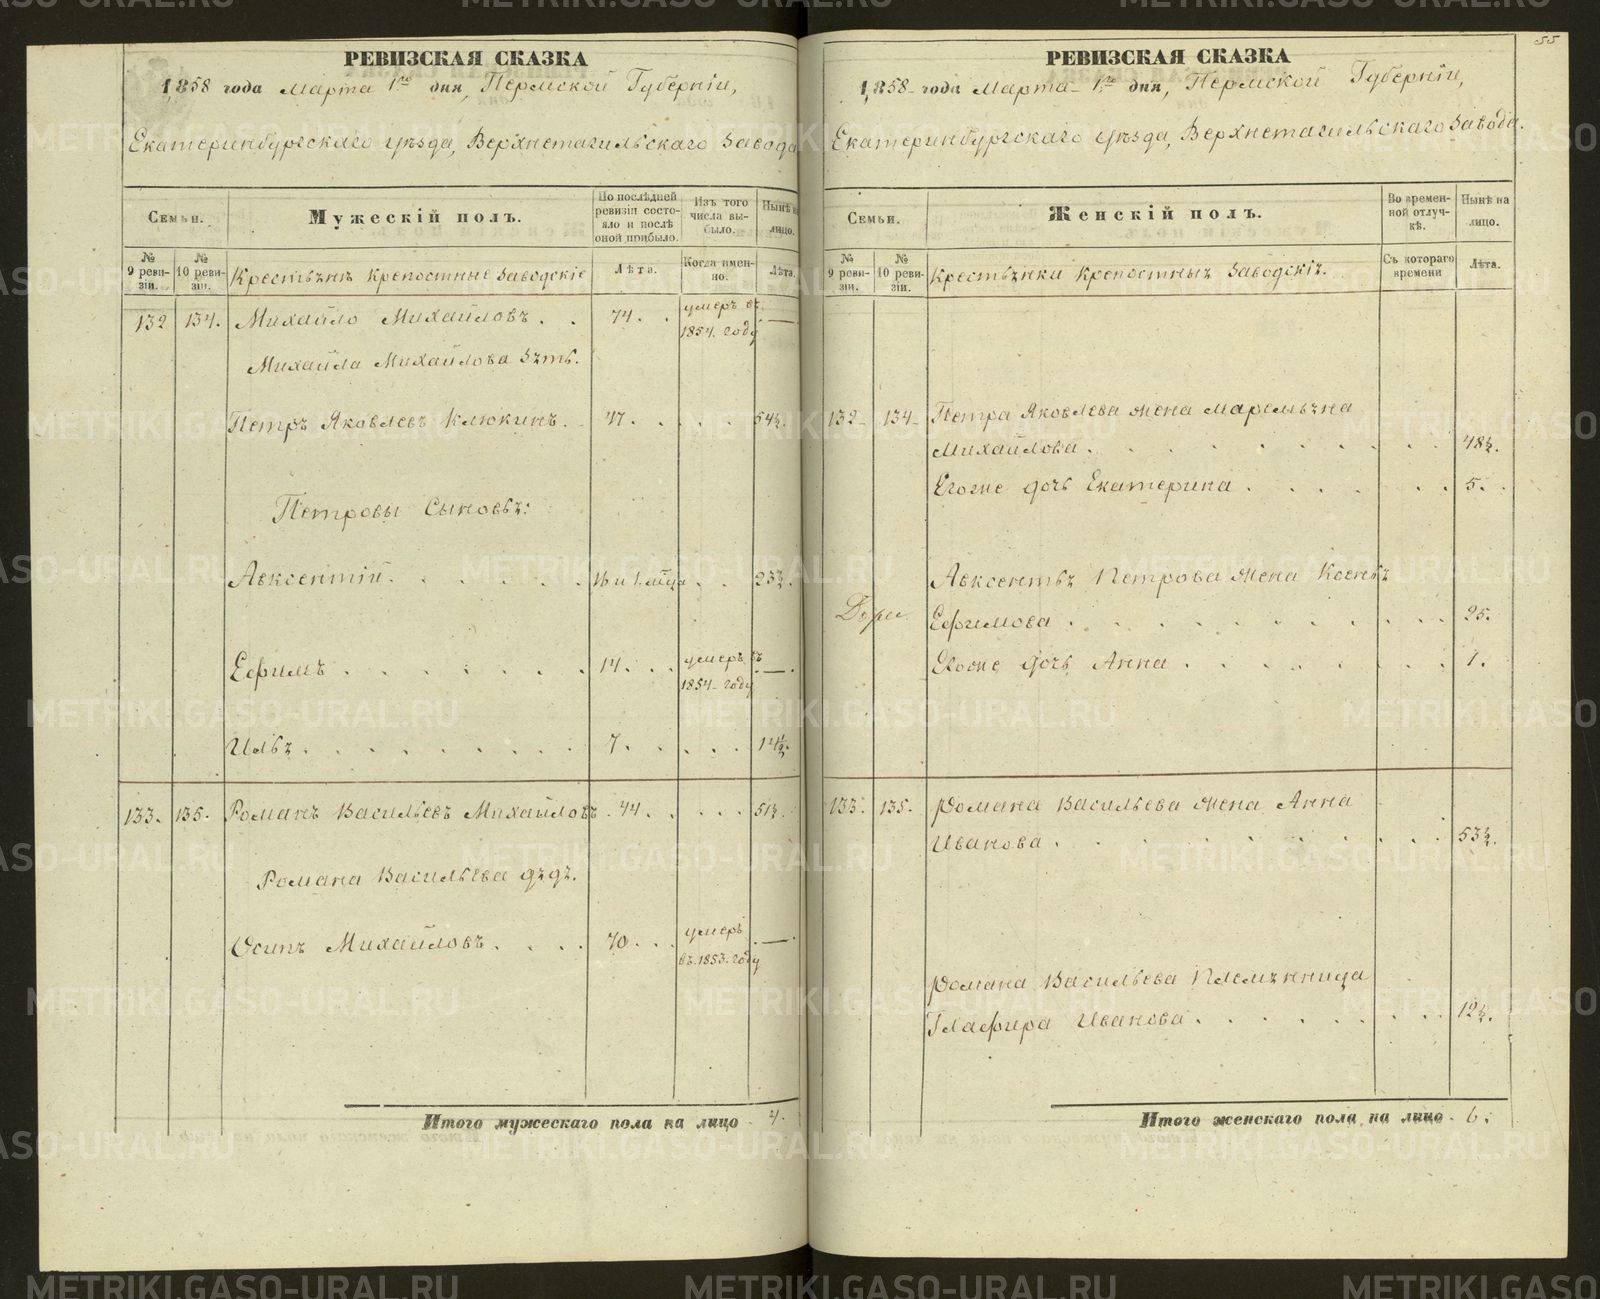 55
РЕВИЗСКАЯ СКАЗКА
1858 года Марта 1го дня, Пермской Губерніи,
Екатеринбургскаго уѣзда, Верхнетагильскаго Завода
Семьи.
Мужескій полъ.
По послѣдней ревизіи состояло и послѣ оной прибыло.
Изъ того числа выбыло.
Нынѣ на лицо.
№ 9 ревизіи.
№ 10 ревизіи.
Крестьяне крепостные Заводскіе
Лѣта.
Когда именно.
Лѣта.
132 134. Михайло Михайловъ . . 74. . умеръ въ 1854. году —
Михайла Михайлова Зять.
Петръ Яковлевъ Клюкинъ. 47. . . . . 54½.
Петровы Сыновья:
Авксентій. . . . . . 16 и 1. м-ца . . 23½.
Ефимъ . . . . . . . 14. . . умеръ въ 1854. году —
Илья . . . . . . . . 7. . . . . 14½.
133. 135. Романъ Васильевъ Михайловъ. 44. . . . . 51½.
Романа Васильева дядя.
Осипъ Михайловъ. . . . 70. . . умеръ въ 1853. году —
Итого мужескаго пола на лицо 4.
РЕВИЗСКАЯ СКАЗКА
1858 года Марта 1го дня, Пермской Губерніи,
Екатеринбургскаго уѣзда, Верхнетагильскаго Завода.
Семьи.
Женскій полъ.
Во временной отлучкѣ.
Нынѣ на лицо.
№ 9 ревизіи.
№ 10 ревизіи.
Крестьянки Крепостныхъ Заводскихъ.
Съ котораго времени
Лѣта.
132 134 Петра Яковлева жена Маремьяна
Михайлова. . . . . . . . . 48½.
Егоже дочь Екатерина . . . . . . 5.
Авксентья Петрова жена Ксенья
Ефимова . . . . . . . . . . 25.
Егоже дочь Анна . . . . . . . 1.
133. 135. Романа Васильева жена Анна
Иванова . . . . . . . . . . 53½.
Романа Васильева Племянница
Глафира Иванова . . . . . . . 12½.
Итого женскаго пола на лицо 6.
METRIKI.GASO-URAL.RU